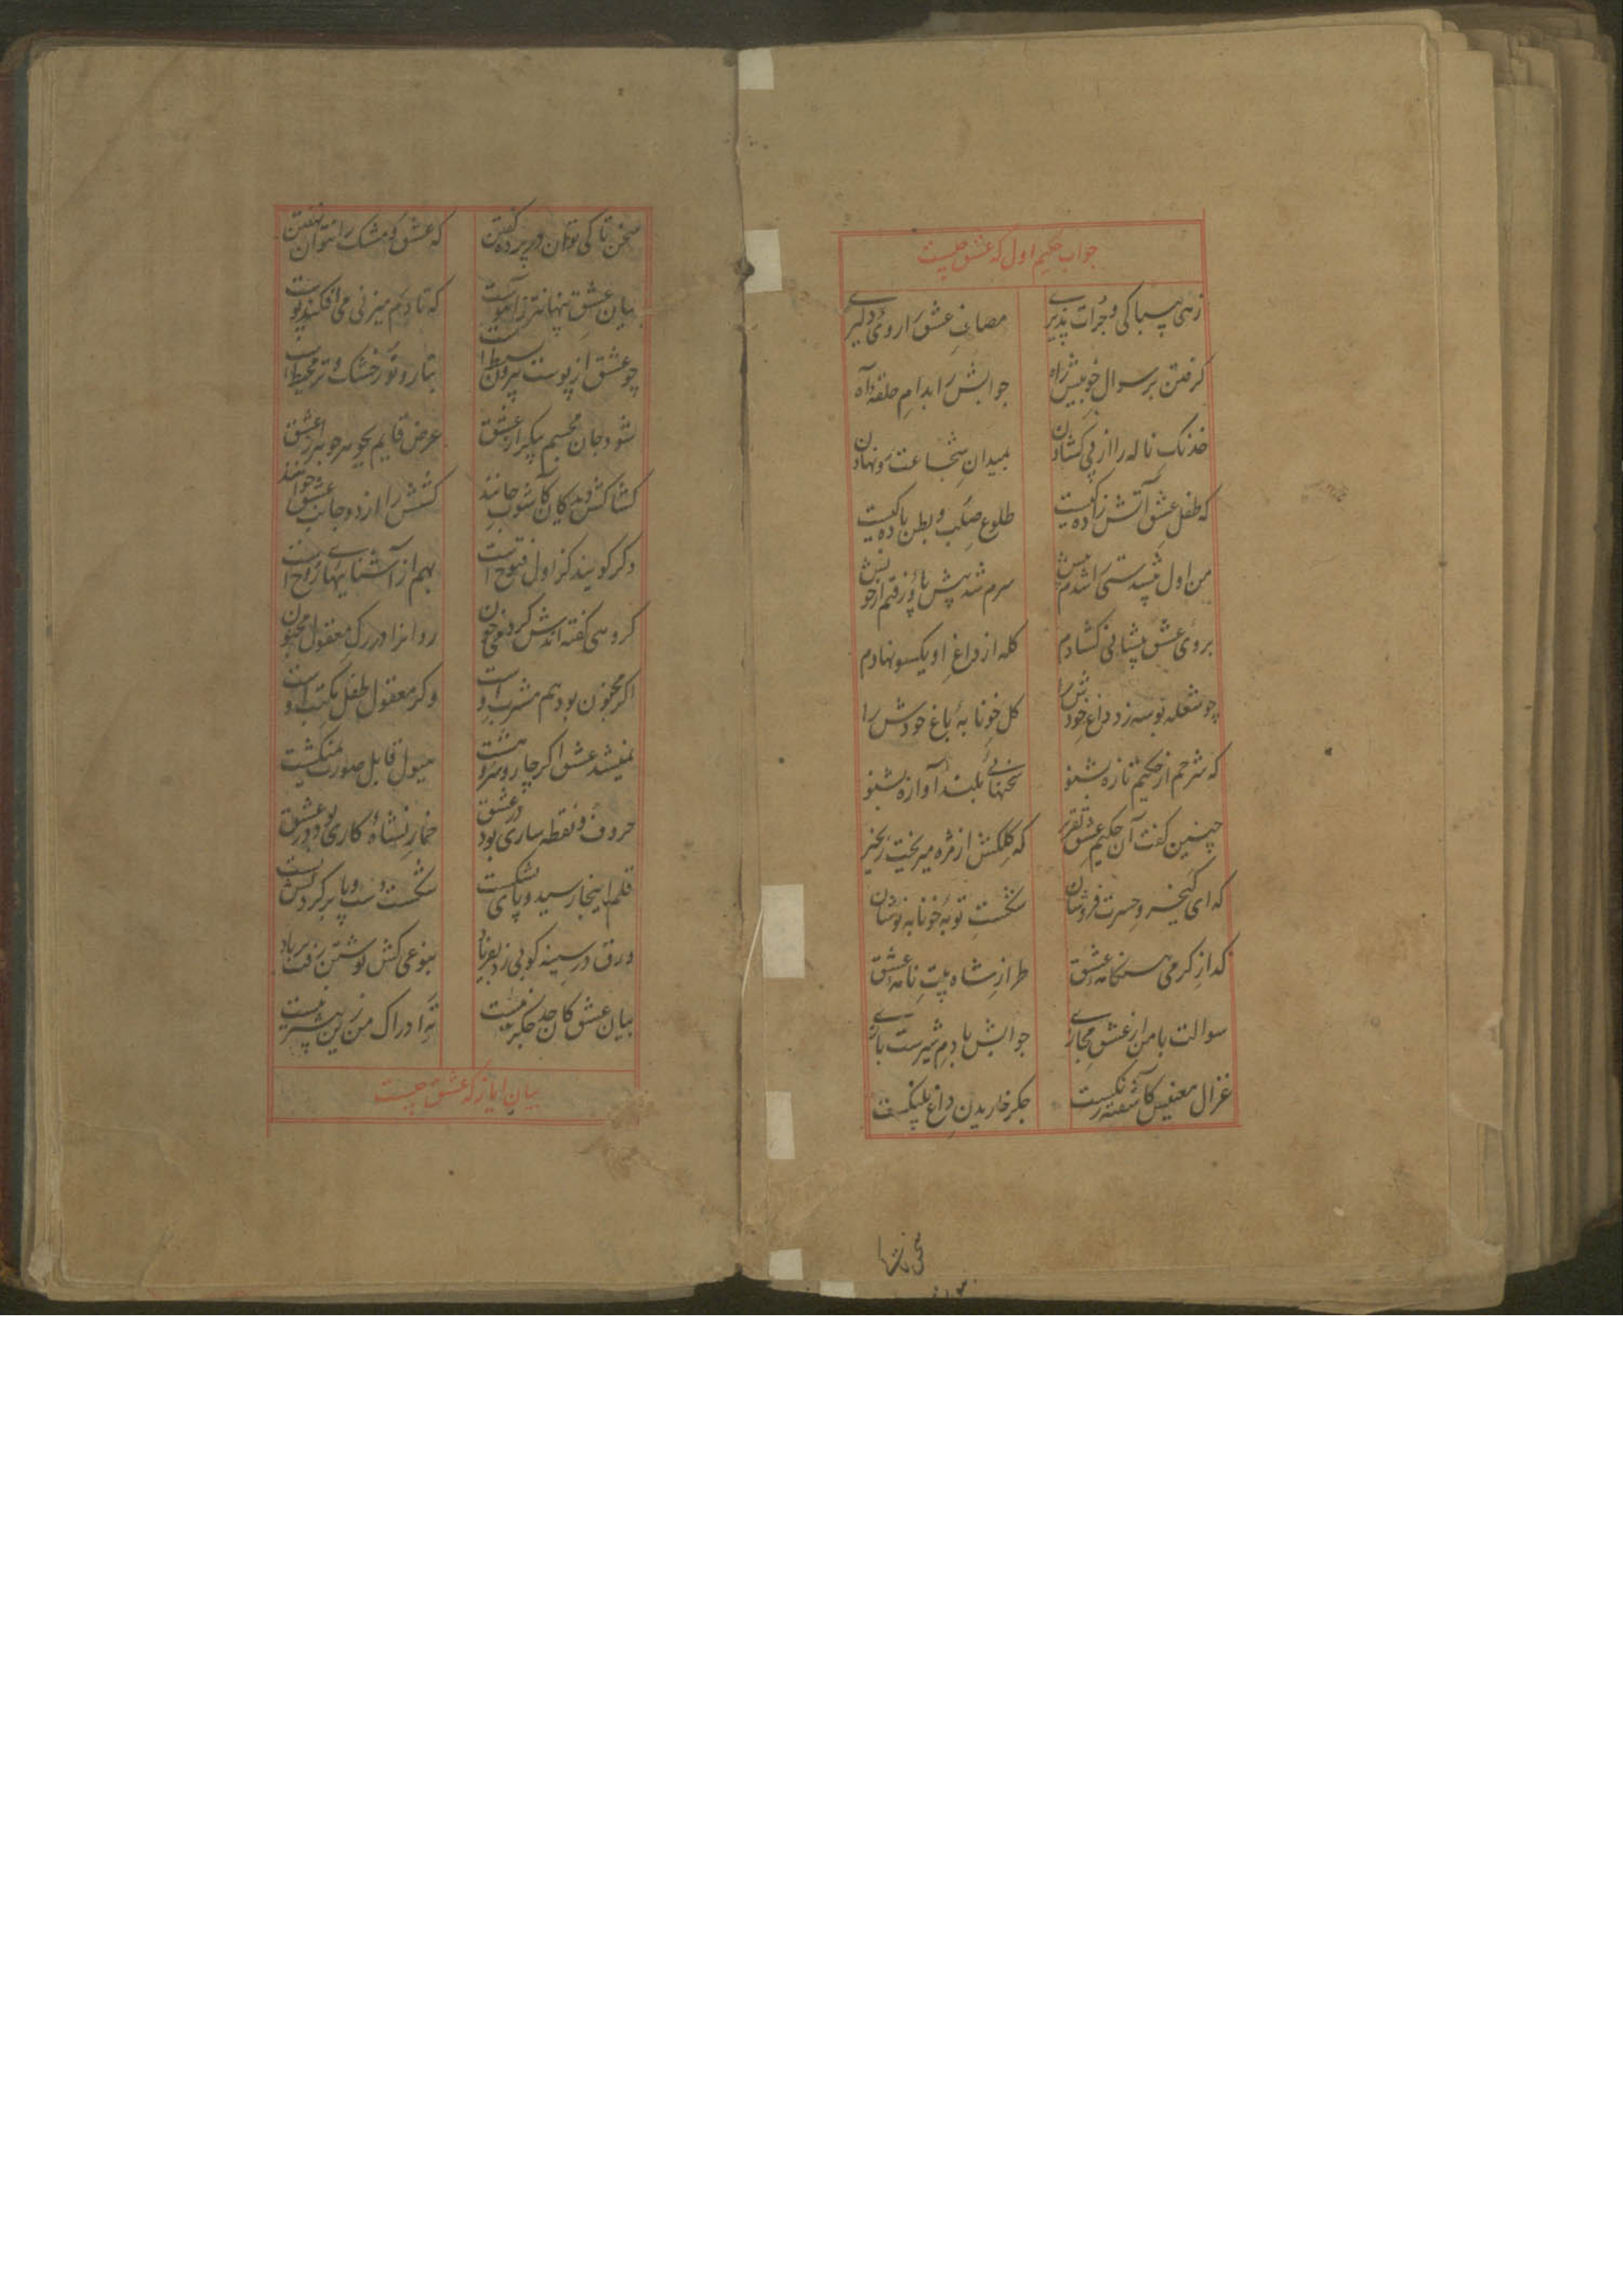 جواب حکیم اول که عشق چیست
زهی بیباکی و جرات پذیری
مصاف عشق را روی دلیری
گرفتن بر سوال خویش راه
جوابش را بدام حلقه آه
خدنک ناله را از پی کشادن
بمیدان شجاعت رو نهادن
که طفل عشق آتش زاده کیست
طلوع صلب و بطن باده کیست
من اول پیشدستی را شدم پیش
سرم شد پیش پا و رفتم از خویش
بروی عشق پیشانی کشادم
کله از داغ او یکسو نهادم
چو شعله بوسه زد داغ خودش را
کل خونابه باغ خودش را
که شرحم از حکیم تازه بشنو
سخنهای بلند آوازه بشنو
چنین گفت آن حکیم عشق تقریر
که کلکش از مژه میریخت زنجیر
که ای گنجینه حسرت فروشان
شکست توبه خونابه نوشان
گداز گرمی هنگامه عشق
طراز شاه بیت نامه عشق
سوالت با من از عشق مجازی
جوابش با دم شیرست بازی
غزال معنیش کاشفته رنکست
جکر خاریدن داغ پلنکست
سخن تا کی توان در پرده گفتن
که عشق و مشک را نتوان نهفتن
بیان عشق پنهانتر ز آهوست
که تا دم میزنی می افکند پوست
چو عشق از پوست بیرون بسیط است
بتار و پود خشک و تر محیط است
شود جان مجسم پیکر از عشق
عرض قایم بجوهر جوهر از عشق
کشاکش دیدکان کآشوب جانند
کشش را از دو جانب عشق خوانند
دکر کویند کز اول فتوح است
بهم از آشناییهای روح است
کروهی گفته اندش کردش خون
روانرا در رک معقول و مجنون
اکر مجنون بود هم مشرب اوست
وکر معقول طفل مکتب اوست
نمیشد عشق اکر چار و سرشت
هیول قابل صورت نمیکشت
حروف و نقطه ساری بود در عشق
خمار نشاه کاری بود در عشق
قلم اینجا رسید و پای بشکست
شکست و دست و پا بر کردنش بست
ورق در سینه کوبی زد بفریاد
بنوعی کش نوشتن رفت بر باد
بیان عشق کان حد جکر نیست
ته ادراک من زین بیشتر نیست
بیان ایاز که عشق چیست